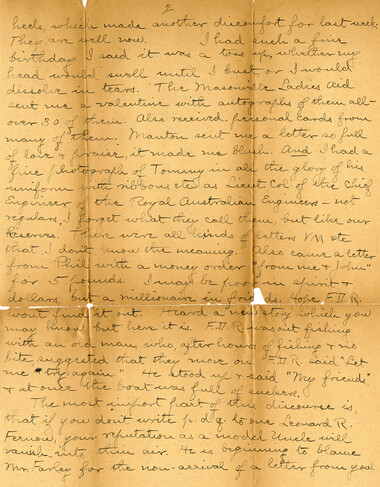 2
heels, which made another discomfort for last week.
They are well now. I had such a fine
birthday I said it was a toss up, whether my
head would swell until I bust or I would
dissolve in tears. The Masonville Ladies Aid
sent me a valentine with autographs of them all -
over 30 of them. Also received personal cards from
many of them. Manton sent me a letter so full
of love & praise, it made me blush. And I had a
fine photograph of Tommy in all the glory of his
uniform with ribbons etc as Lieut Col. of the Chief
Engineer of the Royal Australian Engineers - not
regulars, I forget what they call them, but like our
Reserves. There were all kinds of letters VM etc
that I don't know the meaning. Also came a letter
from Phil with a money order "from me & John"
for 5 pounds. I may be poor in spirit &
dollars, but a millionaire in friends. Hope F.D.R.
won't find it out. Heard a new story which you
may know but here it is. F.D.R. was out fishing
with an old man, who, after hours of fishing & no
bite suggested that they move on. F.D.R. said "Let
me try again." He stood up & said "My friends"
& at once the boat was full of suckers.
The most import part of this discourse is,
that if you don't write p.d.q. to one Leonard R.
Fernow, your reputation as a model Uncle will
vanish into thin air. He is beginning to blame
Mr. Farley for the non-arrival of a letter from you.